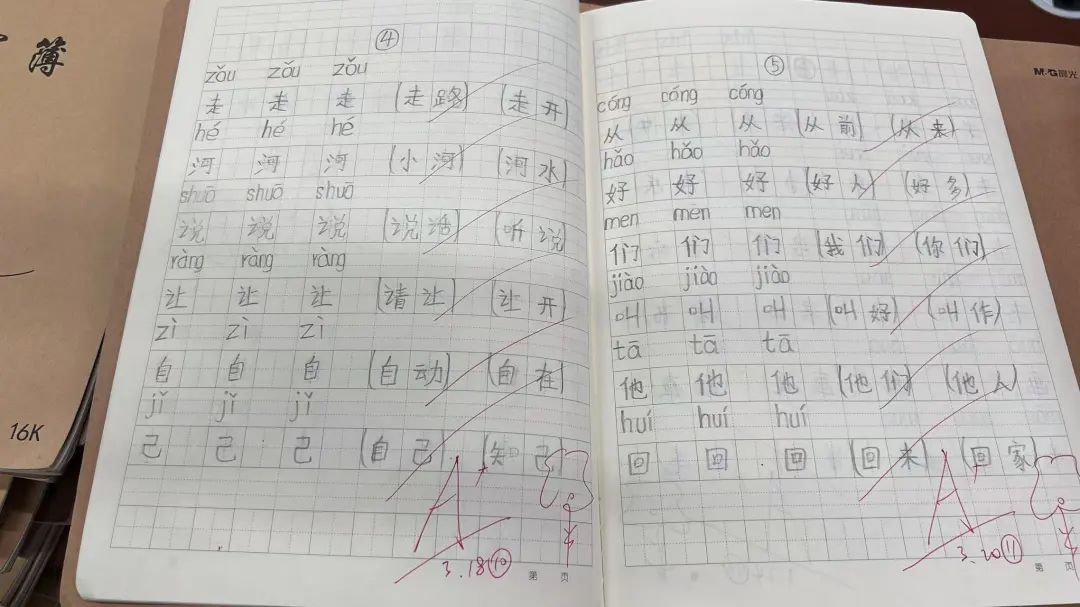 簿
16K
④
zǒu zǒu zǒu
走 走 走 (走路) (走开)
hé hé hé
河 河 河 (小河) (河水)
shuō shuō shuō
说 说 说 (说话) (听说)
ràng ràng ràng
让 让 让 (请让) (让开)
zì zì zì
自 自 自 (自动) (自在)
jǐ jǐ jǐ
己 己 己 (自己) (知己)
A+
3.18⑩
第 页
⑤
cóng cóng cóng
从 从 从 (从前) (从来)
hǎo hǎo hǎo
好 好 好 (好人) (好多)
men men men
们 们 们 (我们) (你们)
jiào jiào jiào
叫 叫 叫 (叫好) (叫作)
tā tā tā
他 他 他 (他们) (他人)
huí huí huí
回 回 回 (回来) (回家)
A+
3.20⑪
第 页
M&G晨光